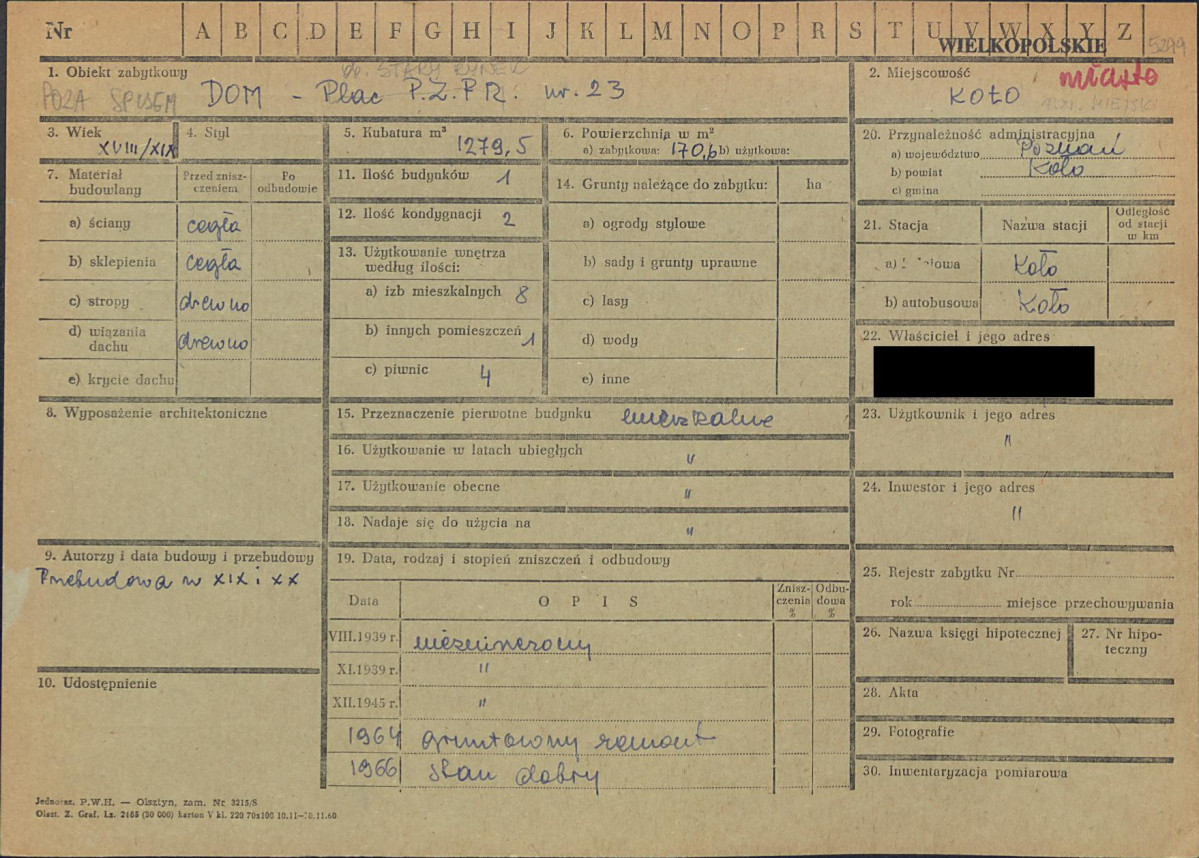 Nr A B C D E F G H I J K L M N O P R S T U V W X Y Z
WIELKOPOLSKIE 5299
1. Obiekt zabytkowy
STARY RYNEK
POZA SPISEM DOM - Plac P.Z.P.R. nr. 23
2. Miejscowość miasto
KOŁO
3. Wiek
XVIII/XIX
4. Styl
5. Kubatura m³
1279,5
6. Powierzchnia w m²
a) zabytkowa: 170,6 b) użytkowa:
7. Materiał budowlany
Przed zniszczeniem
Po odbudowie
a) ściany cegła
b) sklepienia cegła
c) stropy drewno
d) wiązania dachu drewno
e) krycie dachu
8. Wyposażenie architektoniczne
9. Autorzy i data budowy i przebudowy
Przebudowa w XIX i XX
10. Udostępnienie
11. Ilość budynków 1
12. Ilość kondygnacji 2
13. Użytkowanie wnętrza
według ilości:
a) izb mieszkalnych 8
b) innych pomieszczeń 1
c) piwnic 4
14. Grunty należące do zabytku: ha
a) ogrody stylowe
b) sady i grunty uprawne
c) lasy
d) wody
e) inne
15. Przeznaczenie pierwotne budynku mieszkalne
16. Użytkowanie w latach ubiegłych "
17. Użytkowanie obecne "
18. Nadaje się do użycia na "
19. Data, rodzaj i stopień zniszczeń i odbudowy
Data OPIS Zniszczenia % Odbudowa %
VIII.1939 r. niezniszczony
XI.1939 r. "
XII.1945 r. "
1964 gruntowny remont
1966 stan dobry
20. Przynależność administracyjna
a) województwo Poznań
b) powiat Koło
c) gmina
21. Stacja Nazwa stacji Odległość od stacji w km
a) Koło
b) autobusowa Koło
22. Właściciel i jego adres
23. Użytkownik i jego adres
"
24. Inwestor i jego adres
"
25. Rejestr zabytku Nr
rok miejsce przechowywania
26. Nazwa księgi hipotecznej
27. Nr hipoteczny
28. Akta
29. Fotografie
30. Inwentaryzacja pomiarowa
P.W.H. — Olsztyn, zam. Nr 3215/S
Olszt. Z. Graf. Lz. 2485 (30 000) karton V kl. 220 70x100